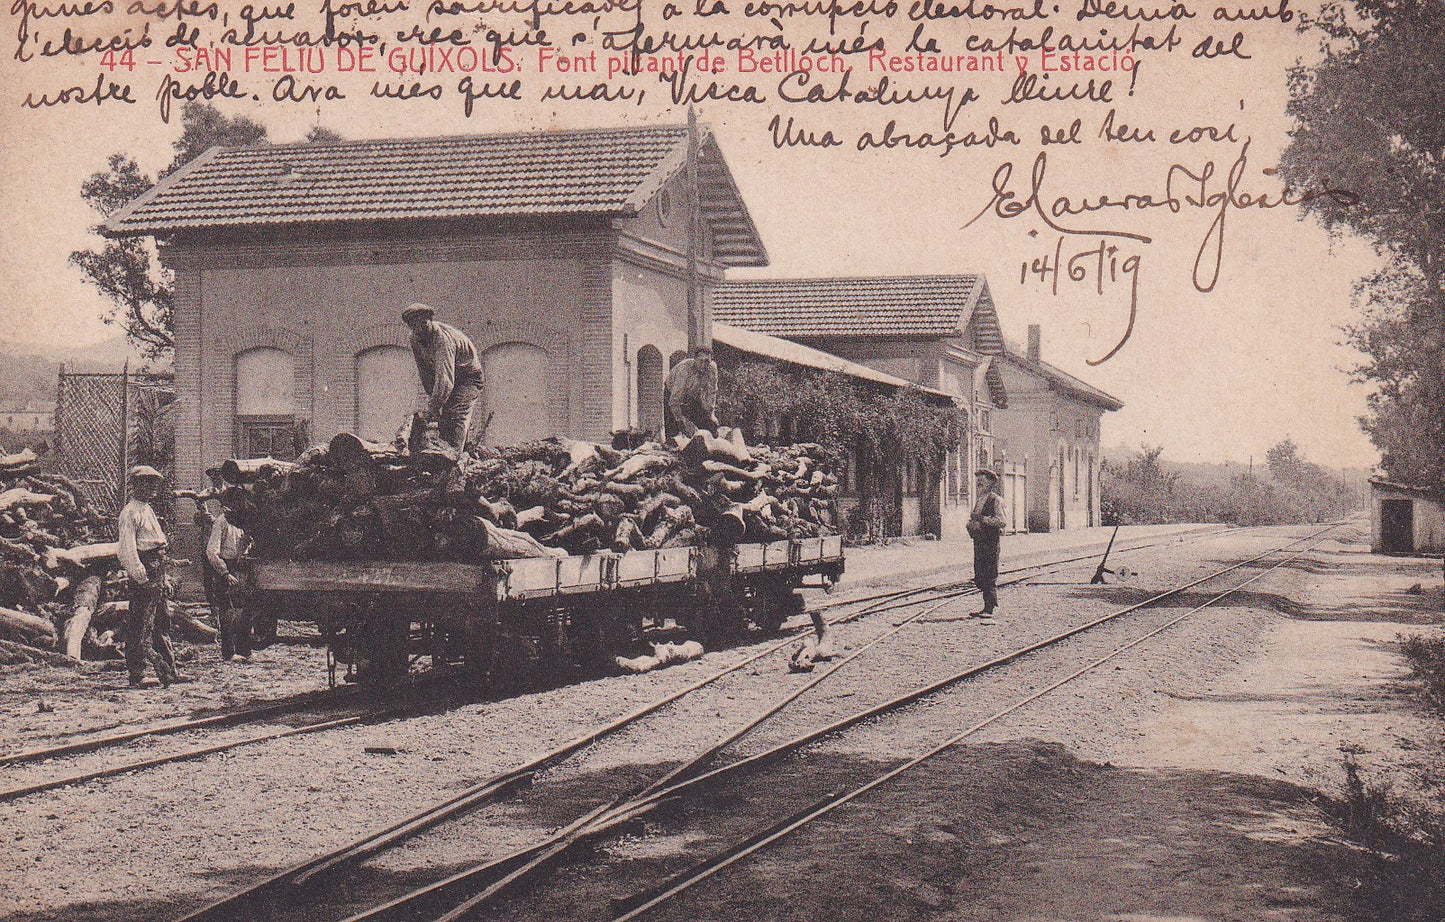 quines actes, que foren sacrificades a la corrupció electoral. Demà amb
l'elecció de senadors, crec que s'afermarà més la catalanitat del
44 - SAN FELIU DE GUIXOLS. Font picant de Betlloch. Restaurant y Estació
nostre poble. Ara més que mai, Visca Catalunya lliure!
Una abraçada del teu cosí,
14/6/19